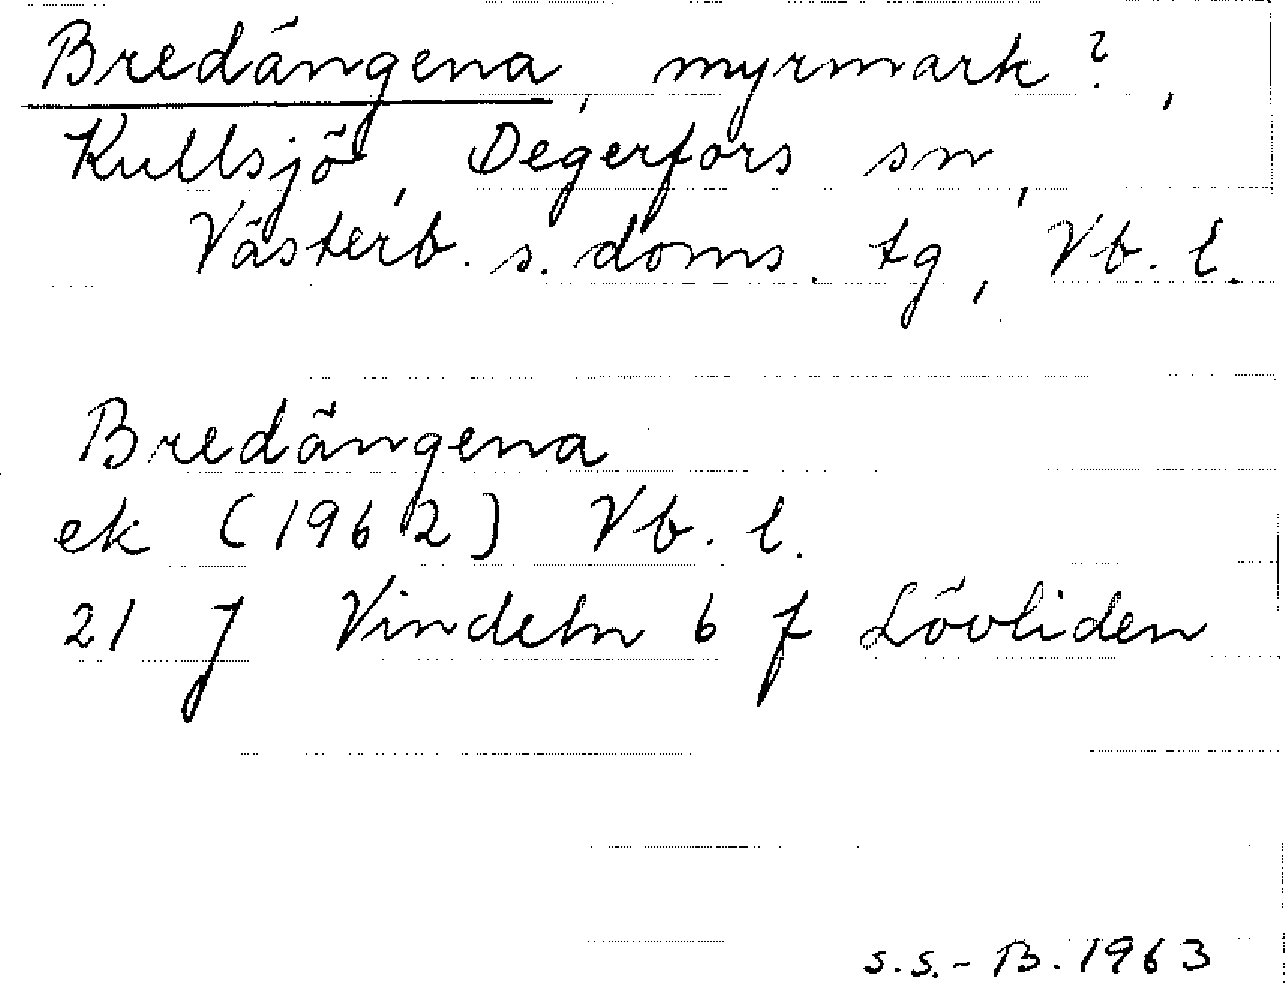 Bredängena, myrmark?,
Kullsjö, Degerfors sn,
Västerb. s. doms. tg, Vb. l.
Bredängena
ek (1962) Vb. l.
21 J Vindeln 6 f Lövliden
S.S.-B. 1963